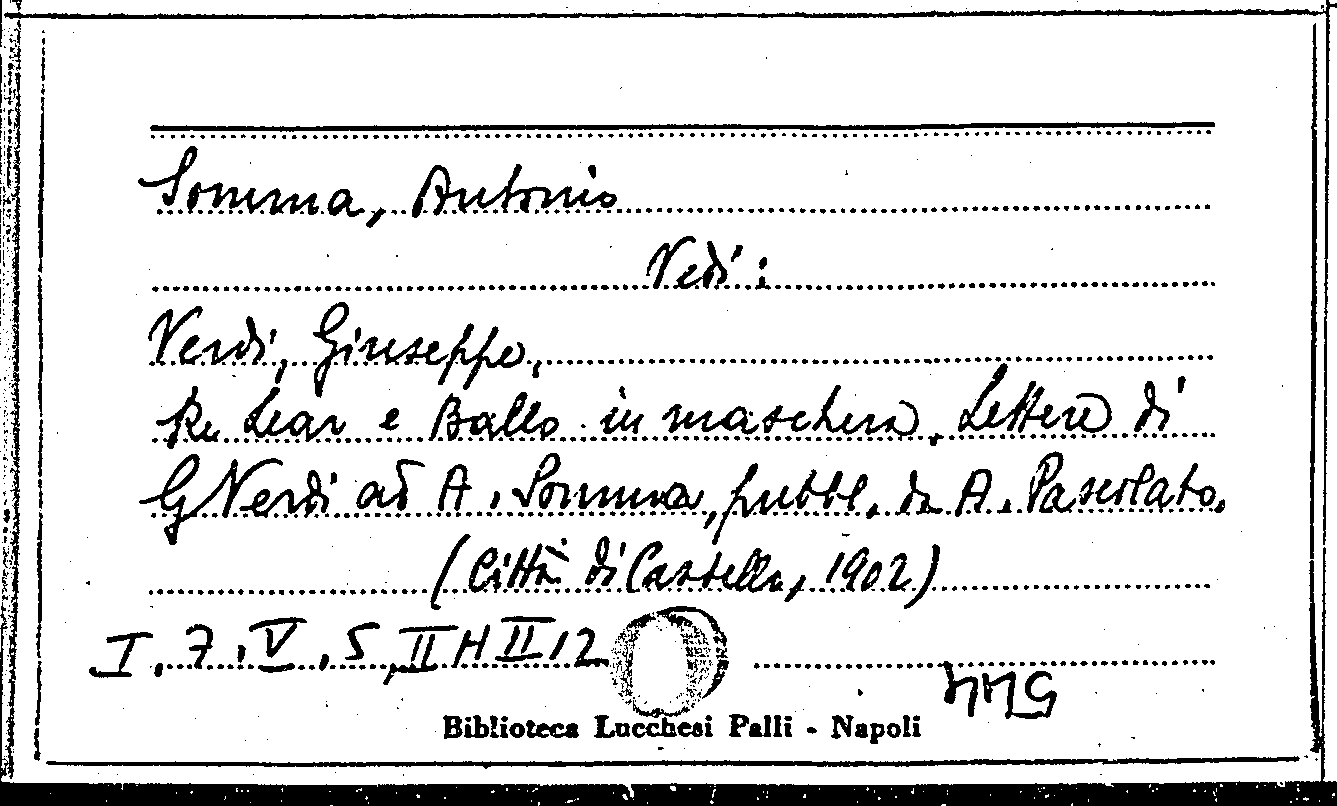 Somma, Antonio
Vedi:
Verdi, Giuseppe,
Re Lear e Ballo in maschera. Lettere di
G Verdi ad A. Somma, pubbl. da A. Pascolato.
(Città di Castello, 1902)
I. 7. V. 5, II H II 12
544
Biblioteca Lucchesi Palli - Napoli